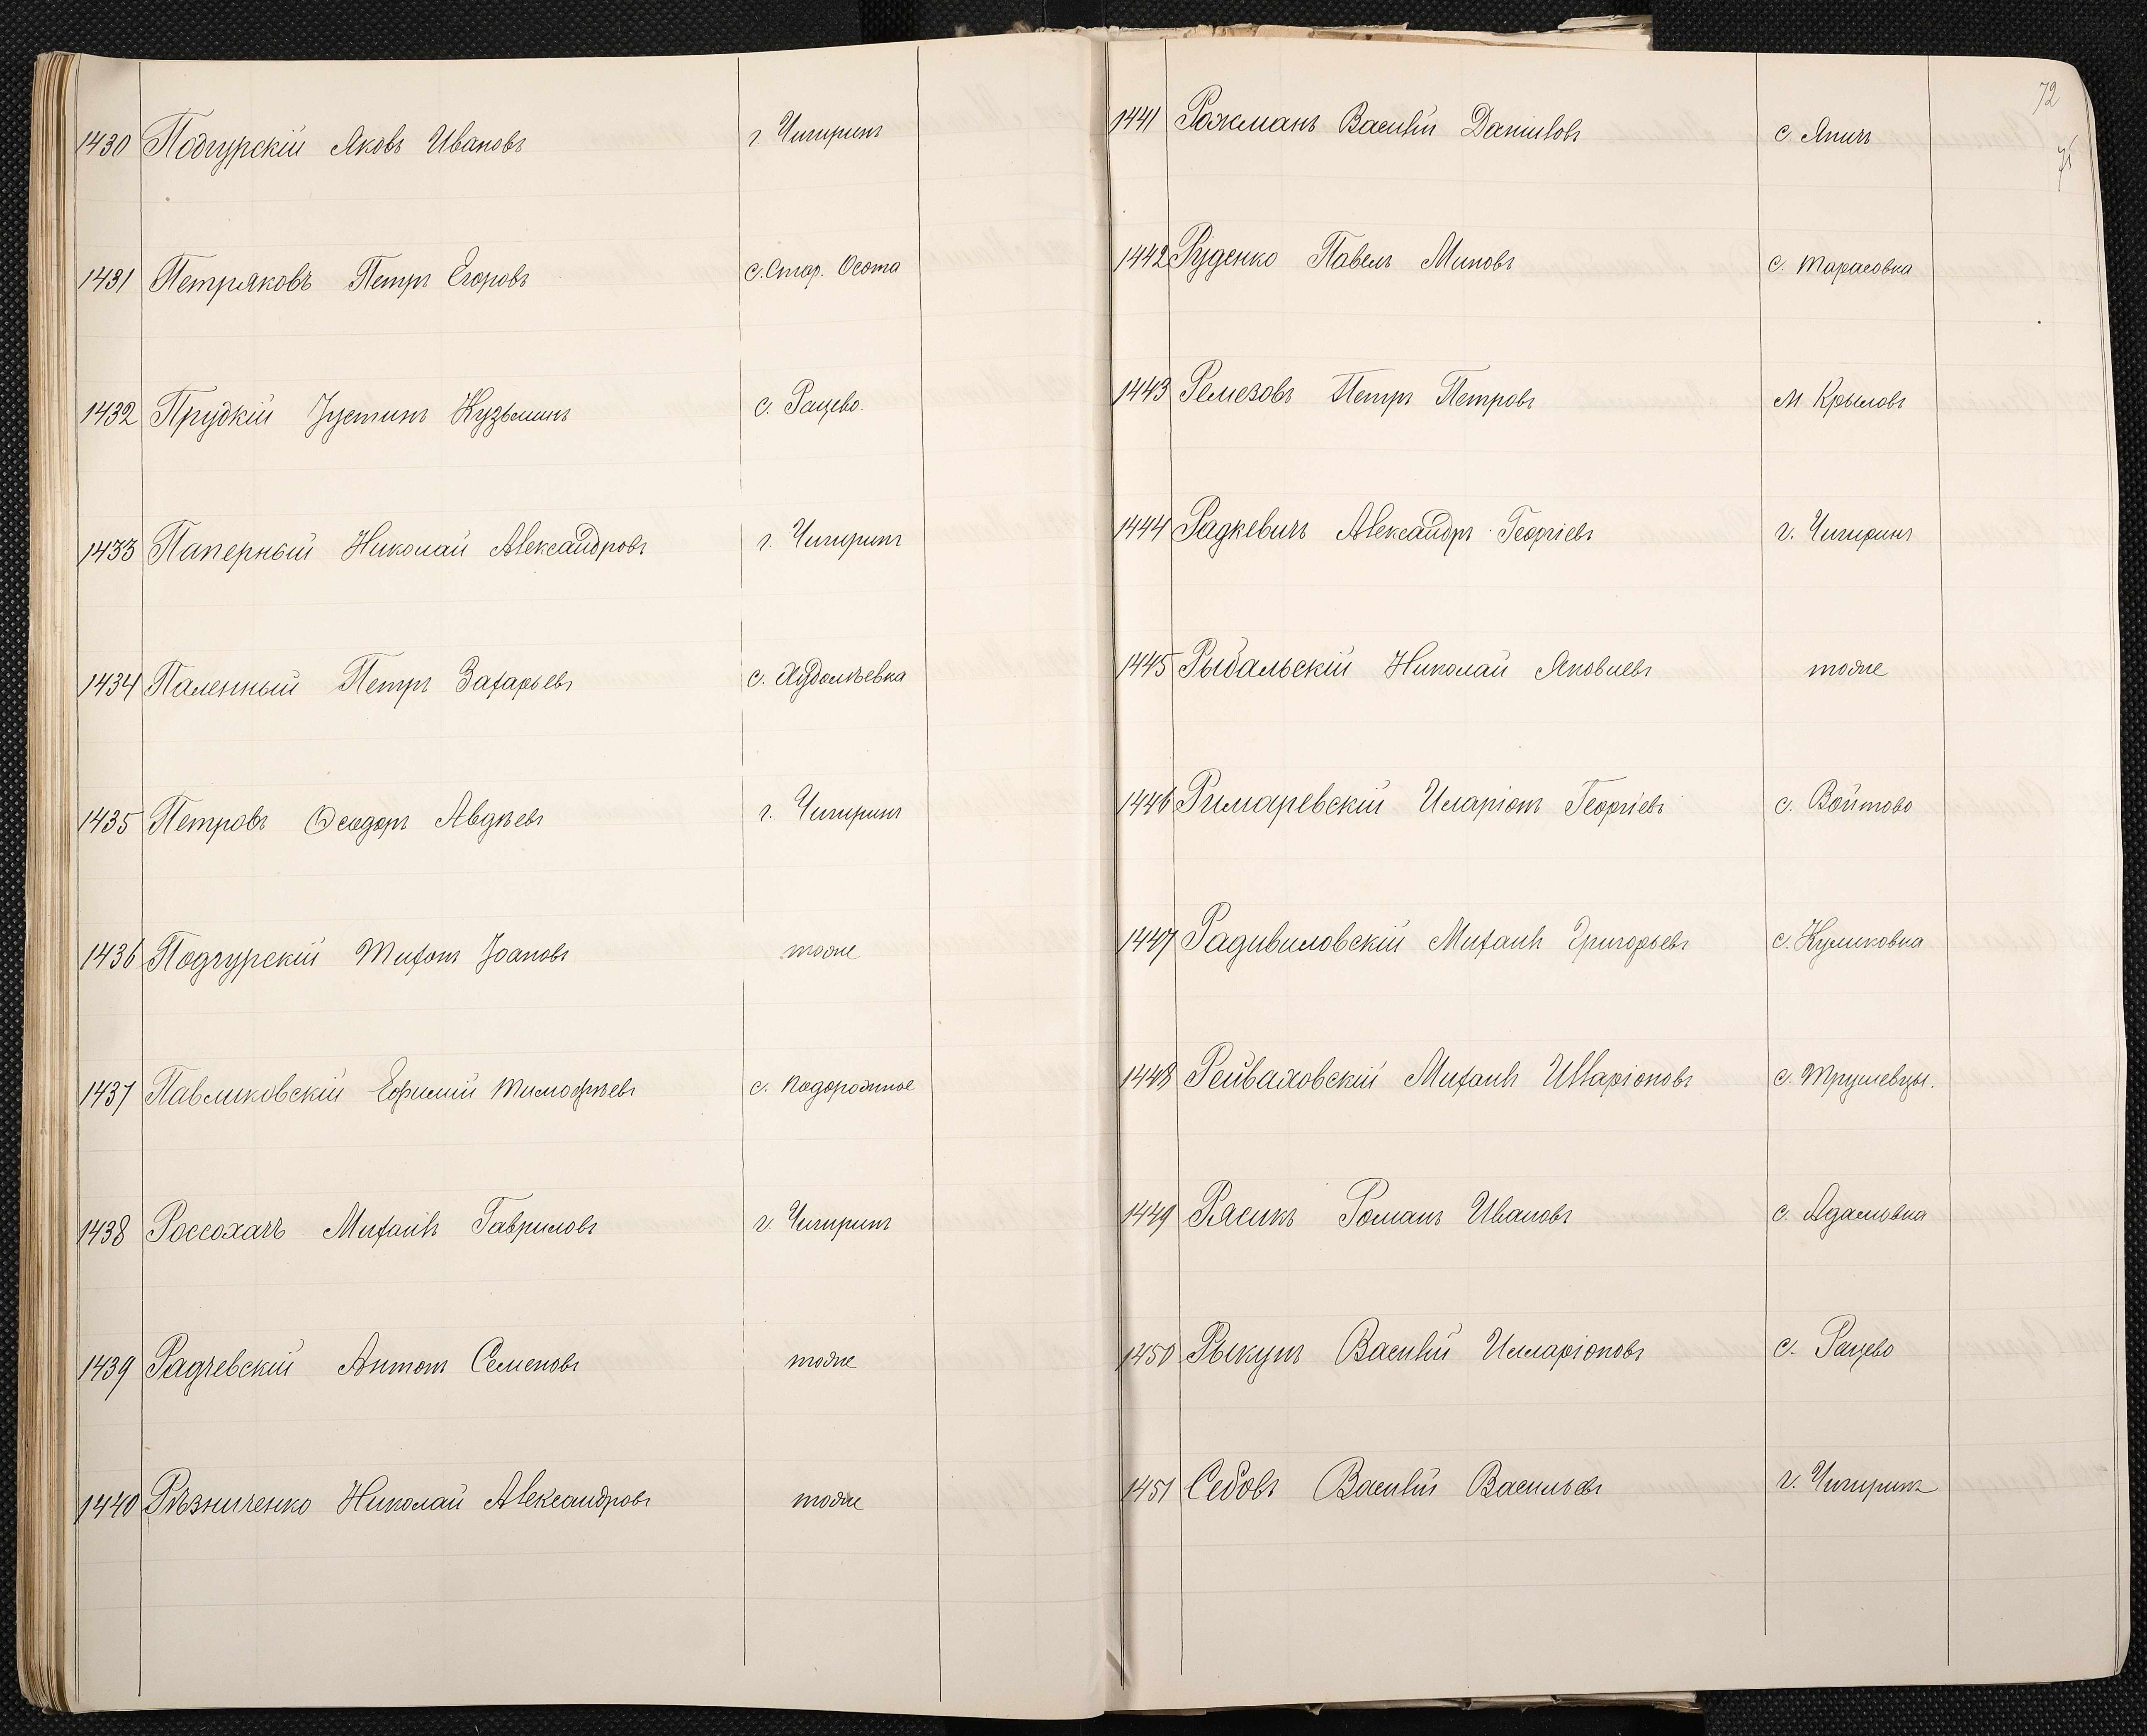 1430 Подгурскій Яковъ Ивановъ г. Чигиринъ
1431 Петряковъ Петръ Егоровъ с. Стар. Осота
1432 Прудкій Іустинъ Кузьминъ с. Рацево.
1433 Паперный Николай Александровъ г. Чигиринъ
1434 Паленный Петръ Захарьевъ с. Худолѣевка
1435 Петровъ Ѳеодоръ Авдѣевъ г. Чигиринъ
1436 Подгурскій Тихонъ Іоановъ тоже
1437 Павликовскій Ефимій Тимофѣевъ с. Подорожное
1438 Россохачъ Михаилъ Гавриловъ г. Чигиринъ
1439 Радчевскій Антонъ Семеновъ тоже
1440 Рѣзниченко Николай Александровъ тоже
72
75
1441 Рожманъ Василій Даниловъ с.
1442 Руденко Павелъ Миновъ с. Тарасовка
1443 Ремезовъ Петръ Петровъ м Крыловъ
1444 Радкевичъ Александръ Георгіевъ г. Чигиринъ
1445 Рыбальскій Николай Яковлевъ тоже
1446 Римаревскій Иларіонъ Георгіевъ с. Войтово
1447 Радивиловскій Михаилъ Григорьевъ с. Куликовка
1448 Рейваховскій Михаилъ Илларіоновъ с. Трушевцы.
1449 Рясикъ Романъ Ивановъ с. Адамовка
1450 Рыкунъ Василій Илларіоновъ с. Рацево
1451 Седовъ Василій Васильевъ г. Чигиринъ